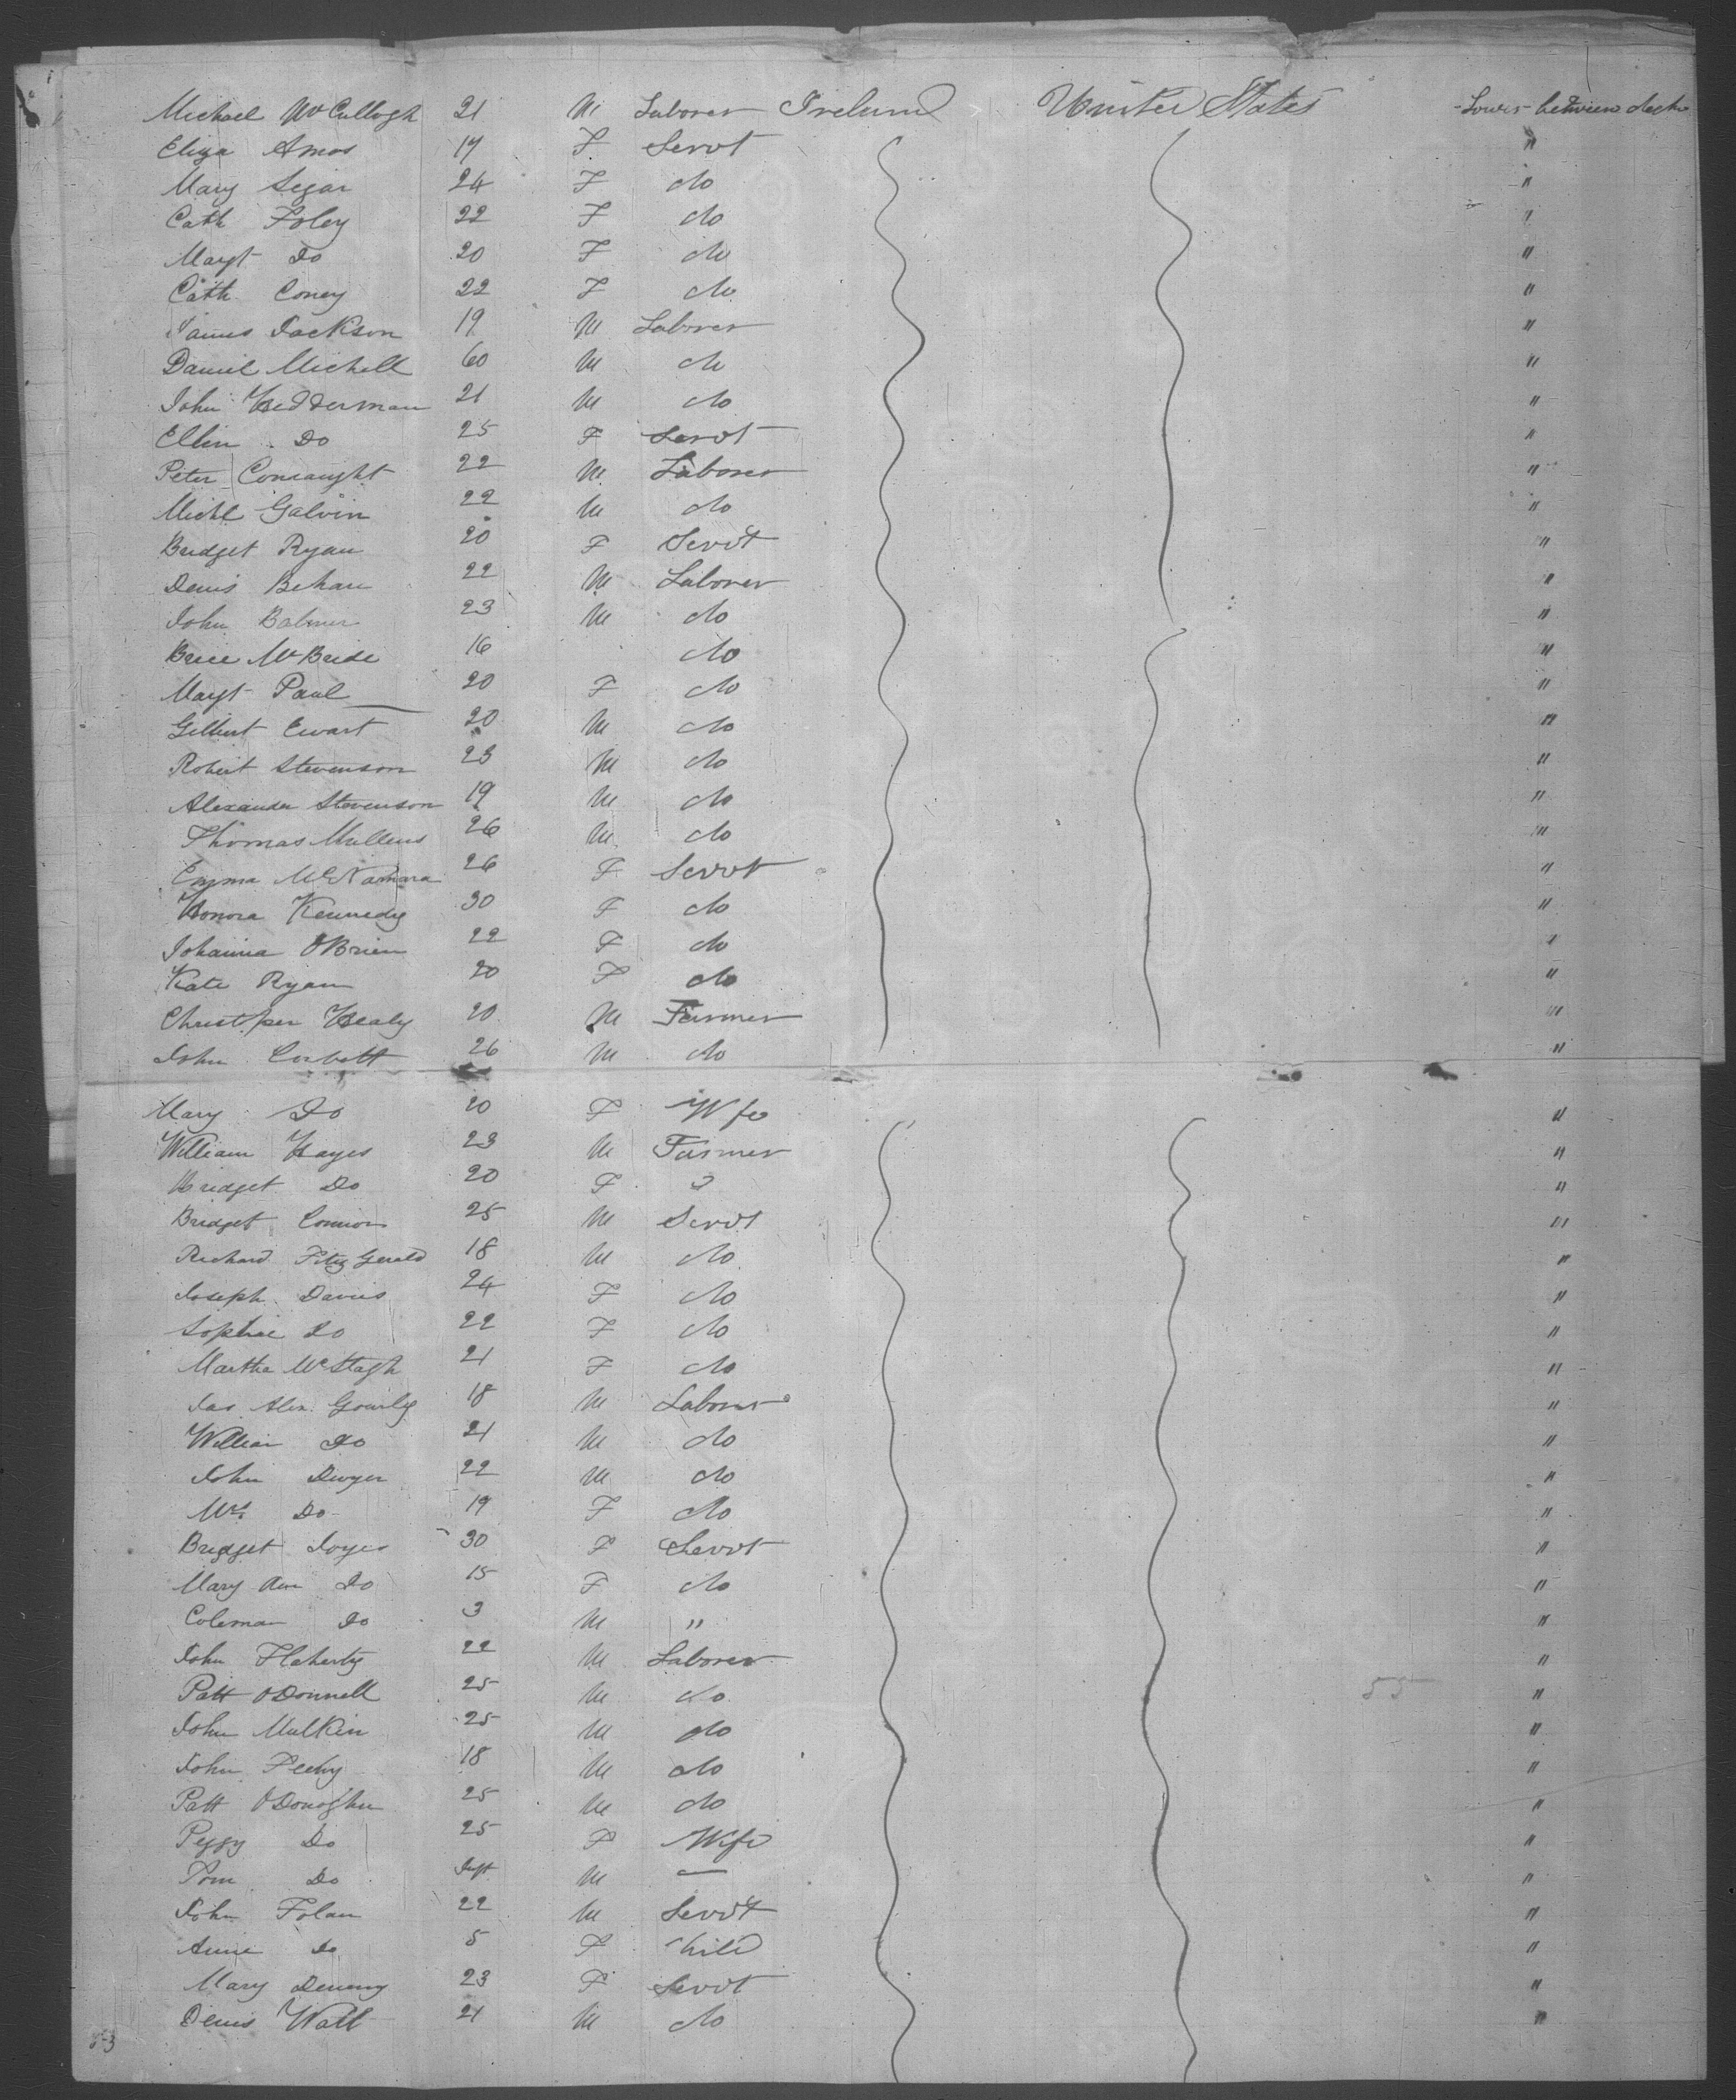 Michael McCullogh 21 M Laborer Ireland United States Lower between decks
Eliza Amos 19 F Servt "
Mary Segar 24 F do "
Cath Foley 22 F do "
Margt Do 20 F do "
Cath Coney 22 F do "
James Jackson 19 M Laborer "
Daniel Michell 60 M do "
John Hedderman 21 M do "
Ellin Do 25 F Servt "
Peter Connaught 22 M Laborer "
Michl Galvin 22 M do "
Bridget Ryan 20 F Servt "
Denis Behan 22 M Laborer "
John Balmer 23 M do "
Brice McBride 16 do "
Margt Paul 20 F do "
Gilbert Ewart 20 M do "
Robert Stevenson 23 M do "
Alexander Stevenson 19 M do "
Thomas Mullens 26 M do "
Emma McNamara 26 F Servt "
Honora Kennedy 30 F do "
Johanna OBrien 22 F do "
Kate Ryan 20 F do "
Christper Healy 20 M Farmer "
John Corbett 26 M do "
Mary Do 20 F Wife "
William Hayes 23 M Farmer "
Bridget Do 20 F "
Bridget Connors 25 M Servt "
Richard FitzGerald 18 M do "
Joseph Davies 24 F do "
Sophie Do 22 F do "
Martha 21 F do "
Jas Alex. Gourly 18 M Laborer "
William Do 21 M do "
John Dwyer 22 M do "
Mrs Do 19 F do "
Bridget Joyce 30 F Servt "
Mary Ann Do 15 F do "
Coleman Do 3 M " "
John Flaherty 22 M Laborer "
Patt ODonnell 25 M do 55 "
John Mulkin 25 M do "
John Feehy 18 M do "
Patt ODonoghue 25 M do "
Peggy Do 25 F Wife "
Tom Do Inft M — "
John Folan 22 M Servt "
Annie Do 5 F Child "
Mary Deneny 23 F Servt "
Denis Wall 21 M do "
53